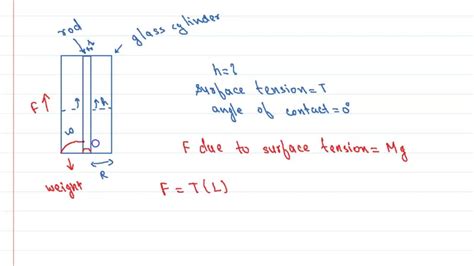 rod
glass cylinder
r
h=?
surface tension=T
angle of contact=0°
F
h
F due to surface tension= Mg
weight
R
F=T(L)